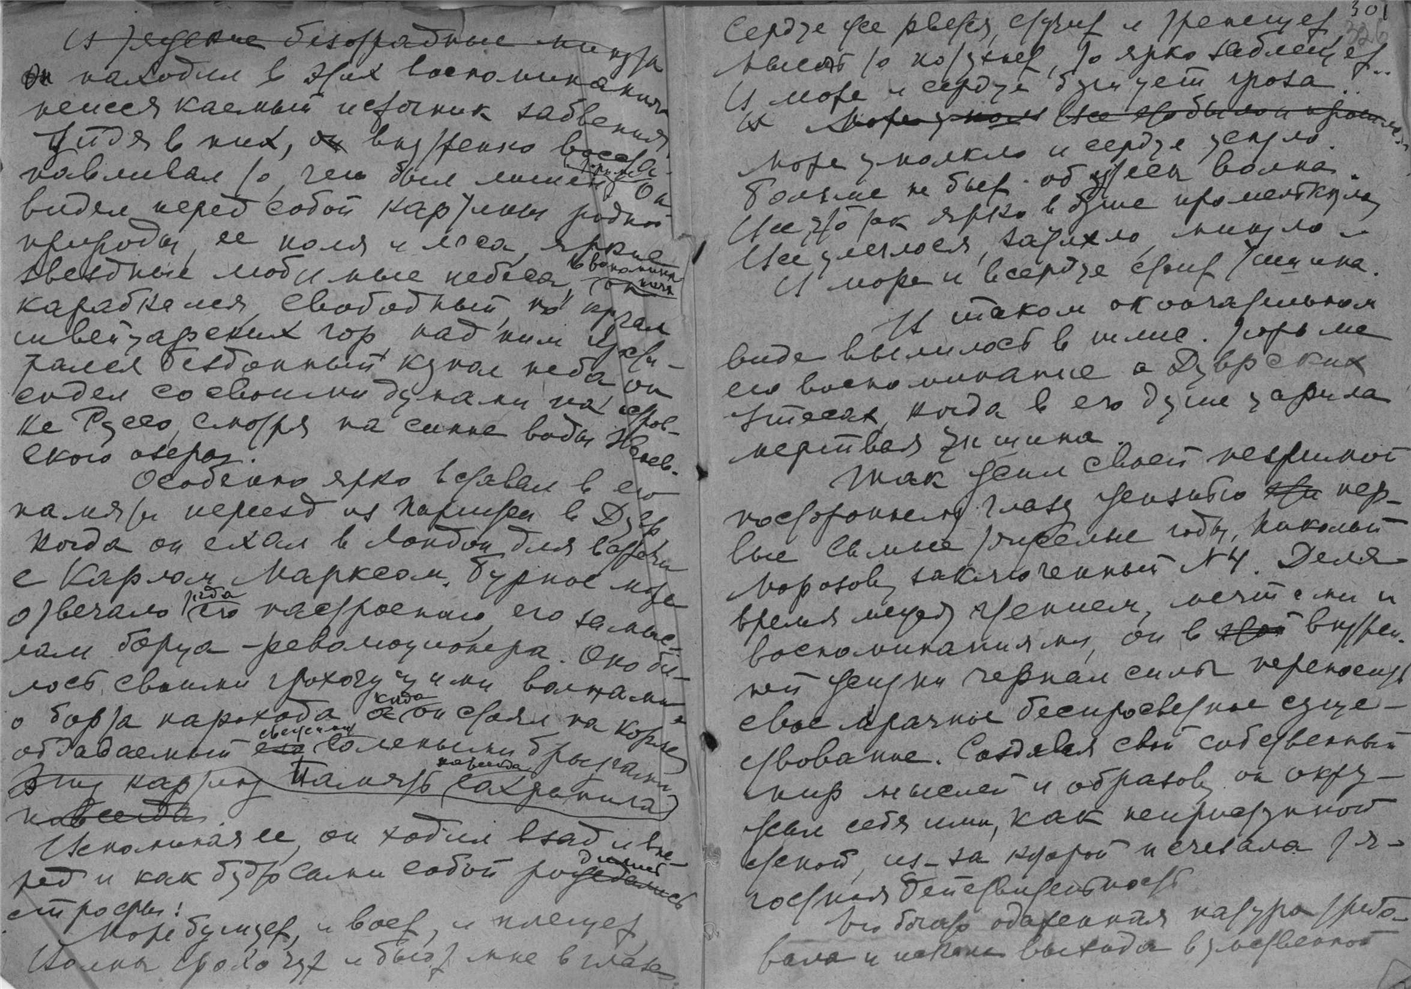 И тяжелые безотрадные минуты
он находил в этих воспоминаниях
неиссякаемый источник забвения.
Уйдя в них, он внутренно восста-
навливал то, чего был лишен. Он
видел перед собой картины родной
природы, ее поля и леса, яркие
звездные любимые небеса,
карабкался, свободный, по кручам
швейцарских гор над ним
бездонный купол неба он
сидел со своими думами на остров-
ке Руссо, смотря на синие воды Женев-
ского озера.
Особенно ярко вставал в его
памяти переезд из Парижа в Дувр
когда он ехал в Лондон для встречи
с Карлом Марксом. Бурное море
отвечало тогда его настроению, его замыс-
лам борца-революционера. Оно би-
лось своими грохочущими волнами
о борта парохода когда он стоял на корме
обдаваемый его солеными брызгами
Эту картину память навсегда сохранила
навсегда
Вспоминая ее, он ходил взад и впе-
ред и как будто сами собой родились
строфы:
Море бушует, и воет, и плещет,
Волны грохочут и бьют мне в глаза
301
Сердце же рвется, стучит и трепещет
Мысль то потухнет, то ярко заблещет..
В море и сердце бушует гроза..
Море умолкло и сердце уснуло.
Больше не бьет об утесы волна.
Все что так ярко в душе промелькнуло
Все улеглося, затихло, минуло –
В море и в сердце стоит тишина.
В таком окончательном
виде вылилось в шлис. тюрьме
его воспоминание о Дуврских
утесах, когда в его душе царила
мертвая тишина.
Так жил своей незримой
постороннему глазу жизнью пер-
вые самые тяжелые годы, Николай
Морозов, заключенный №4. Деля
время между чтением, мечтами и
воспоминаниями, он в этой внутрен-
ней жизни черпал силы переносить
свое мрачное беспросветное суще-
ствование. Создавая свой собственный
мир мыслей и образов, он окру-
жил себя ими, как неприступной
стеной, из-за которой исчезала тя-
гостная действительность
Но богато одаренная натура требо-
вала и искала выхода в умственной